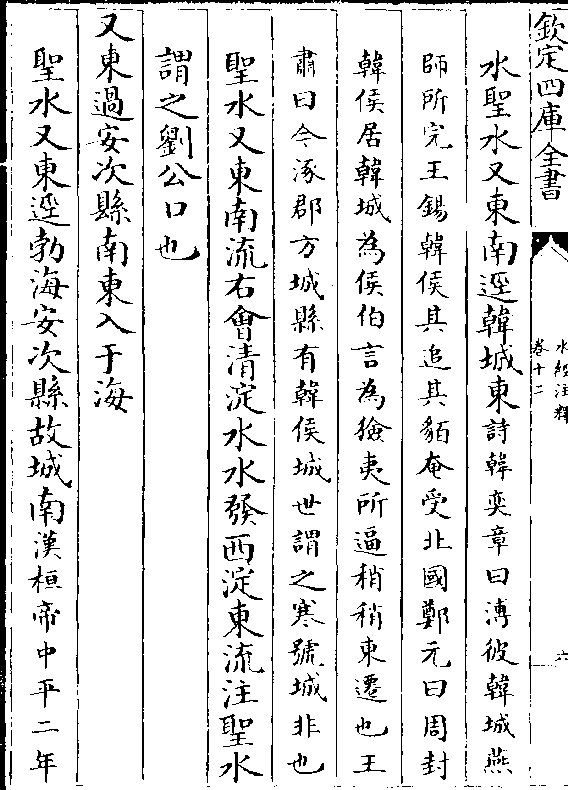 欽定四庫全書
水經注釋
卷十二
六
水聖水又東南逕韓城東詩韓奕章曰溥彼韓城燕
師所完王錫韓侯其追其貊奄受北國鄭元曰周封
韓侯居韓城為侯伯言為獫夷所逼稍稍東遷也王
肅曰今涿郡方城縣有韓侯城世謂之寒號城非也
聖水又東南流右會清淀水水發西淀東流注聖水
謂之劉公口也
又東過安次縣南東入于海
聖水又東逕勃海安次縣故城南漢桓帝中平二年